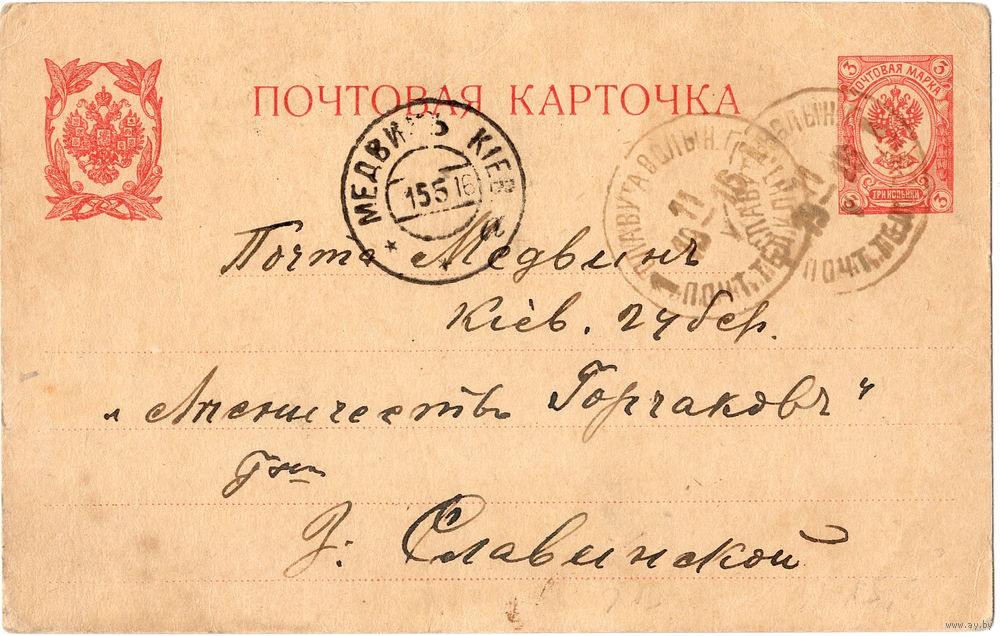 ПОЧТОВАЯ КАРТОЧКА
3 3
ПОЧТОВАЯ МАРКА
ТРИ КОПѢЙКИ
3 3
МЕДВИНЪ КІЕВ.
15 5 16
а
СЛАВУТА ВОЛЫН. Г.
11 5 16
ПОЧТ.
11
ПОЧТ.
Почта Медвинъ
Кіев. губер.
„ Горчаковъ“
Г-жѣ
З. Славинской
www.ay.by